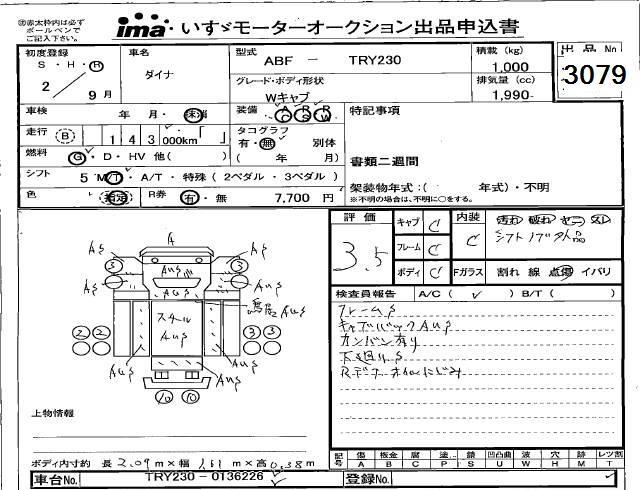 ㊟赤太枠内は必ず
ボールペンで
ご記入下さい。
ima いすゞモーターオークション出品申込書
初度登録
S・H・R
2／9月
車名
ダイナ
型式
ABF － TRY230
グレード・ボディ形状
Wキャブ
積載（kg）
1,000
排気量（cc）
1,990-
出品No
3079
車検 年 月・抹消
装備 A C P S R W
特記事項
走行 B 1 4 3 000km「 」
タコグラフ
有・無 別体
（ 年 月）
燃料 G・D・HV 他（ ）
書類二週間
シフト 5 M/T・A/T・特殊（2ペダル・3ペダル）
色 指定 R券 有・無 7,700円
架装物年式：（ 年式）・不明
※不明の場合は、不明に○をする。
評価
3.5
キャブ C
フレーム C
ボディ C
内装 C
汚れ 破れ
シフトノブ欠品
Fガラス 割れ 線 点傷 イバリ
検査員報告 A/C（✓）B/T（ ）
フレームS
キャブバックAUS
カンバン有り
下廻りS
Rデフオイルにじみ
A
AS AS
3 AUS 3
AS AS
AUS
スチール
AUS
AUS
2 2 3 3
AUS AUS
AUS
10 10
上物情報
ボディ内寸約 長2.09m×幅1.61m×高0.38m
記号 傷 板金 腐 塗 錆 凹凸曲 波 穴 跡 レツ割
A B C P S U W H M T
車台No. TRY230-0136226
登録No.